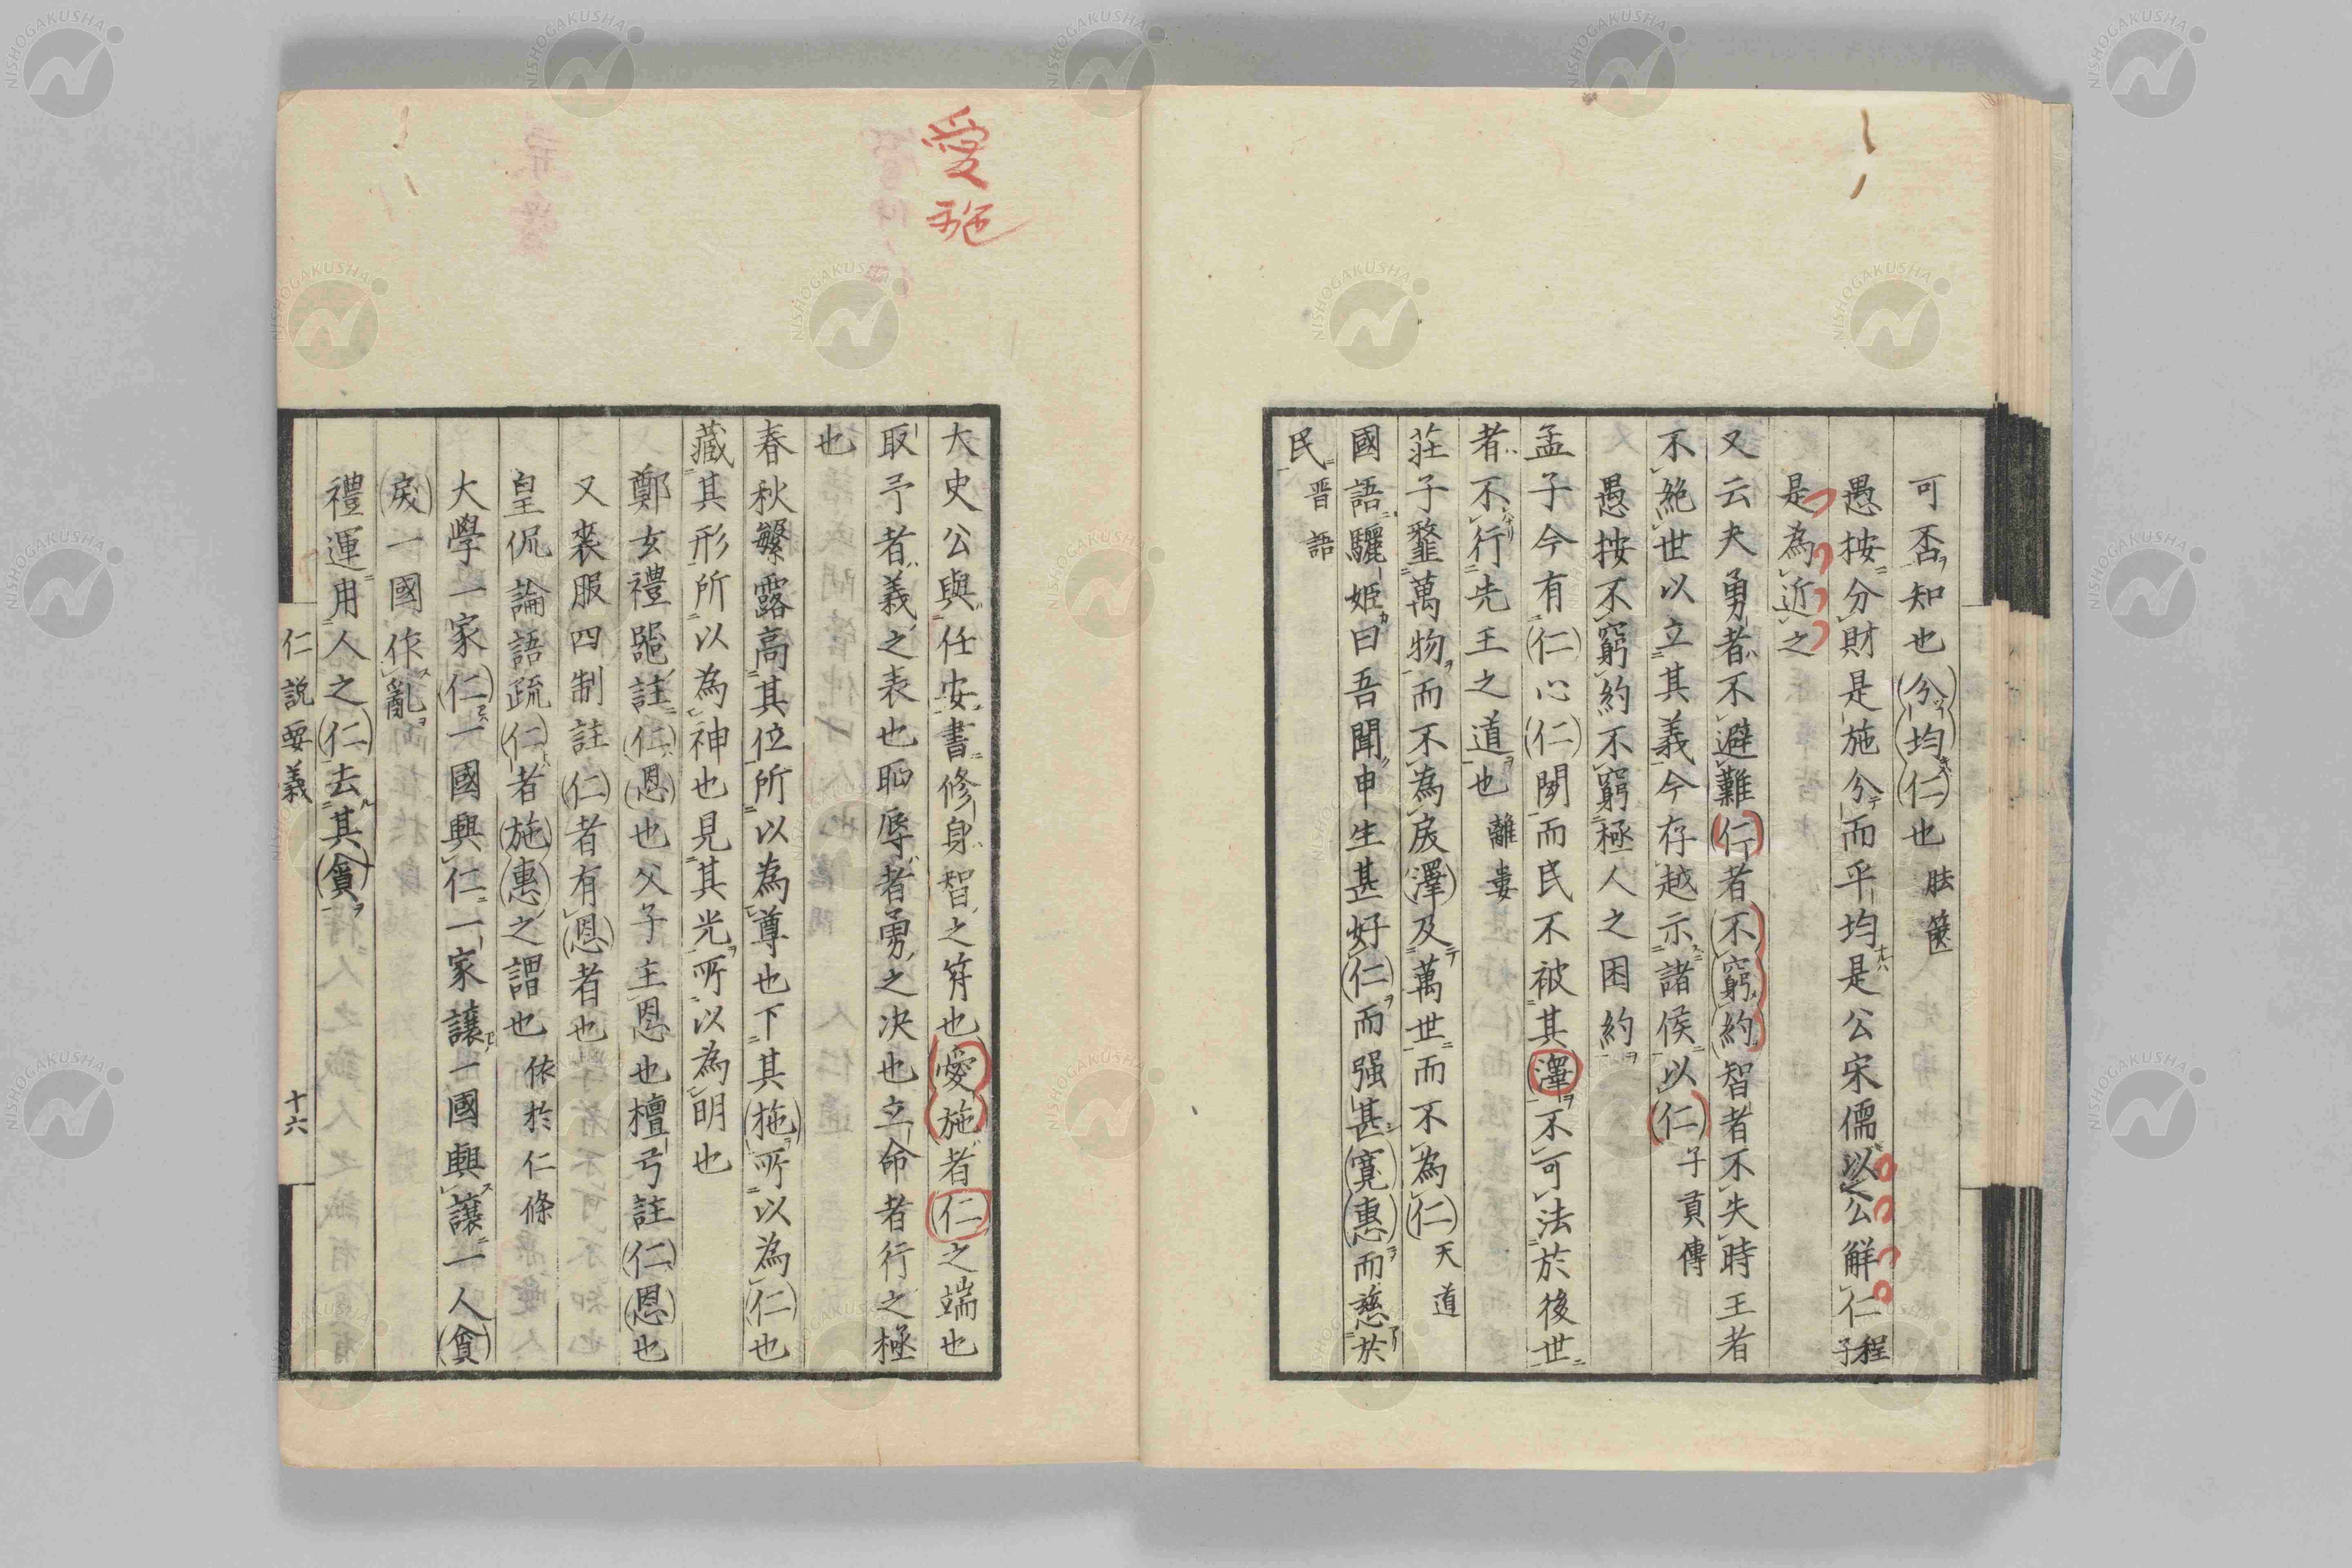 可否知也分均仁也 胠篋
愚按分財是施分而平均是公宋儒以公解仁 程子
是為近之
又云夫勇者不避難仁者不窮約智者不失時王者
不絶世以立其義今存越示諸侯以仁 子貢傳
愚按不窮約不窮極人之困約
孟子今有仁心仁聞而民不被其澤不可法於後世
者不行先王之道也 離婁
莊子䪠萬物而不為戾澤及萬世而不為仁 天道
國語驪姬曰吾聞申生甚好仁而强甚寬惠而慈於
民 晋語
愛施
大史公與任安書修身智之符也愛施者仁之端也
取予者義之表也恥辱者勇之决也立命者行之極
也
春秋繁露高其位所以為尊也下其施所以為仁也
藏其形所以為神也見其光所以為明也
鄭玄禮器註仁恩也父子主恩也檀弓註仁恩也
又喪服四制註仁者有恩者也
皇侃論語疏仁者施惠之謂也 依於仁條
大學一家仁一國興仁一家讓一國興讓一人貪
戾一國作亂
禮運用人之仁去其貪
仁説要義
十六
NISHOGAKUSHA